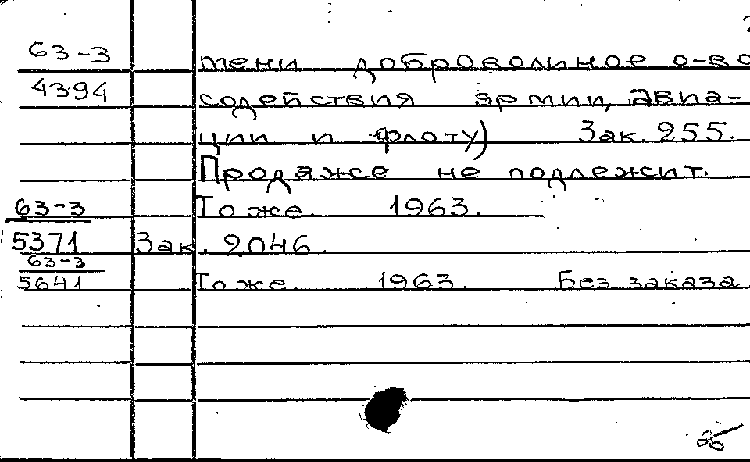 63-3 мени добровольное о-во
4394 содействия армии, авиа-
ции и флоту) Зак. 255.
Продаже не подлежит.
63-3 То же. 1963.
5371 Зак. 2046.
63-3
5641 То же. 1963. Без заказа